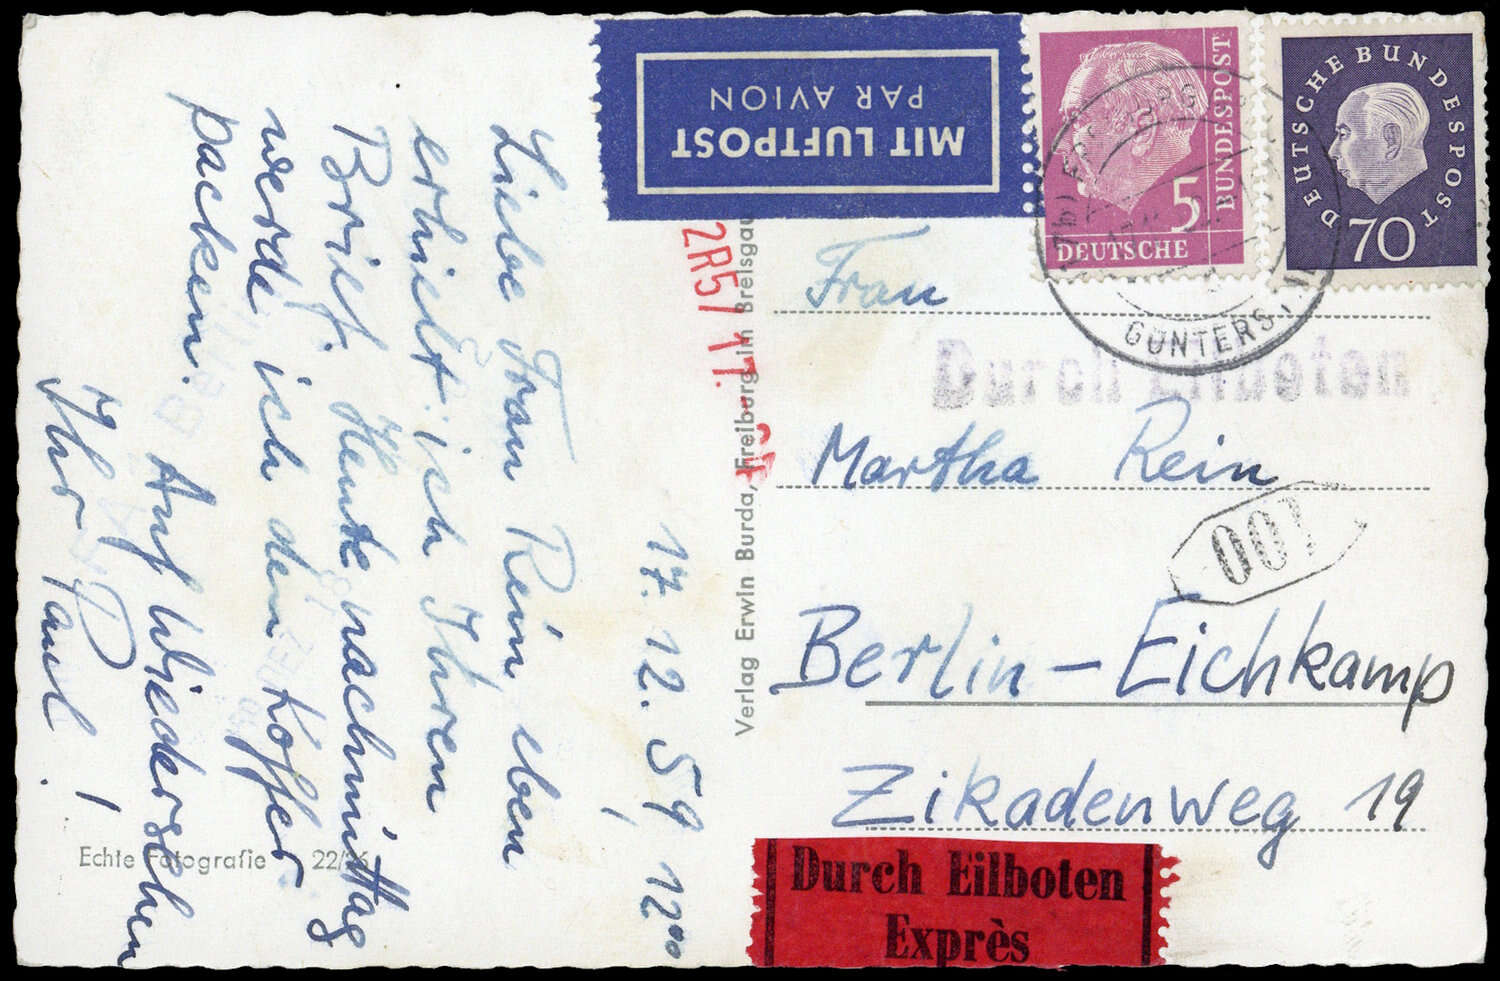 17. 12. 59 12⁰⁰
Liebe Frau Rein, eben
erhielt ich Ihren
Brief. Heute nachmittag
werde ich den Koffer
packen. Auf Wiedersehen
Ihr Paul!
Echte Fotografie 22/
Verlag Erwin Burda, Freiburg im Breisgau
2R57 17.
MIT LUFTPOST
PAR AVION
5
DEUTSCHE
BUNDESPOST
DEUTSCHE BUNDESPOST
70
GÜNTERS
Durch Eilboten
Frau
Martha Rein
001
Berlin-Eichkamp
Zikadenweg 19
Durch Eilboten
Exprès